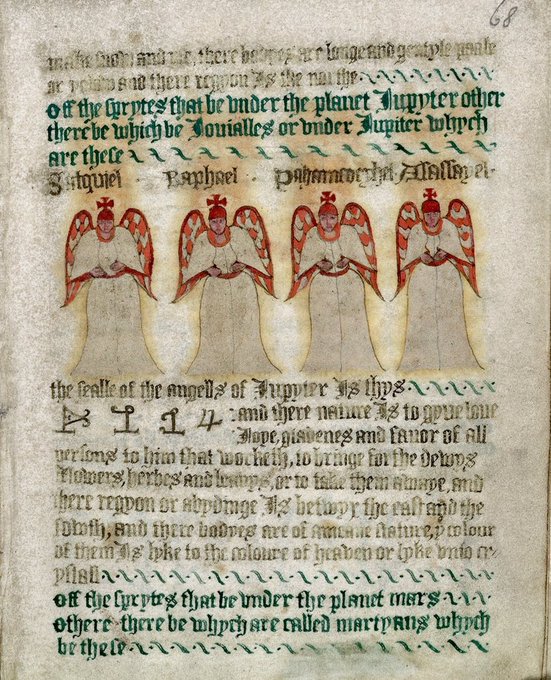 68
make snow and ise, there bodyes are longe and gentyle paale
or yelow and there regyon Is the northe
off the sprytes that be vnder the planet Jupyter other
there be which be Jouialles or vnder Jupiter whych
are these
Satquiel Raphael Pahamcocyhel Asassayel
the sealle of the angells of Jupyter Is thys
and there nature Is to gyue loue
Joye, gladenes and fauor of all
persons to him that worketh, to bringe forthe dewys
flowers, herbes and leauys, or to take them awaye, and
there regyon or abydinge Is betwyx the east and the
sowth, and there bodyes are of meane stature, ye colour
of them Is lyke to the coloure of heaven or lyke vnto cr
ystall
off the sprytes that be vnder the planet mars
othere there be whych are called martyans whych
be these